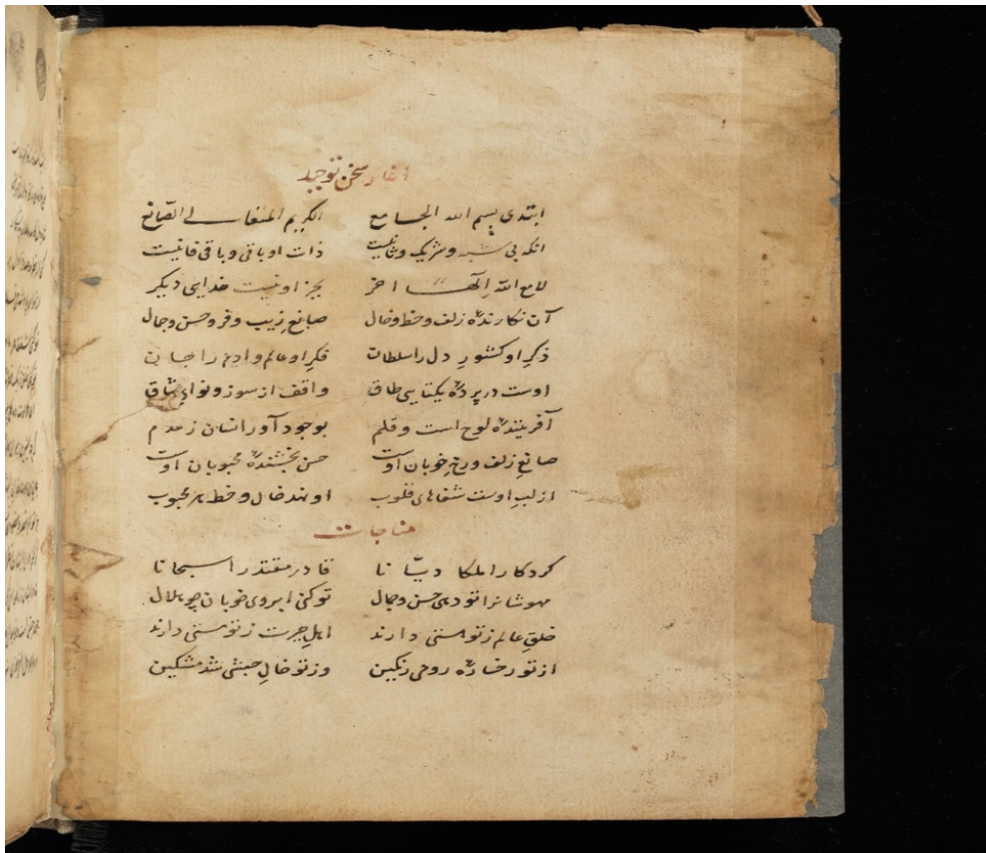 آغاز سخن توحید
ابتدی بسم الله الجامع الکریم المتعالی الصّانع
انکه بی شبه و شریک و ثانیست ذات او باقی و باقی فانیست
لا مع اللّه اِلٓهاً اخر بجز او نیست خدایی دیکر
آن نکارندهٔ زلف و خط و خال صانعِ زیب و فر و حسن و جمال
ذکرِ او کشورِ دل را سلطان فکرِ او عالم و ادم را جان
اوست در پردهٔ یکتایی طاق واقف از سوز و نوای عشاق
آفرینندهٔ لوح است و قلم بوجود آور انسان ز عدم
صانعِ زلف و رخِ خوبان اوست حسن بخشندهٔ محبوبان اوست
از لبِ اوست شفاهای قلوب او نهد خال و خط هر محبوب
مناجات
کردکارا ملکا دیّانا قادر مقتدرا سبحانا
مهوشانرا تو دهی حسن و جمال تو کنی ابروی خوبان چو هلال
خلقِ عالم ز تو هستی دارند اهلِ حیرت ز تو مستی دارند
از تو رخسارهٔ رومی رنکین وز تو خالِ حبشی شد مشکین